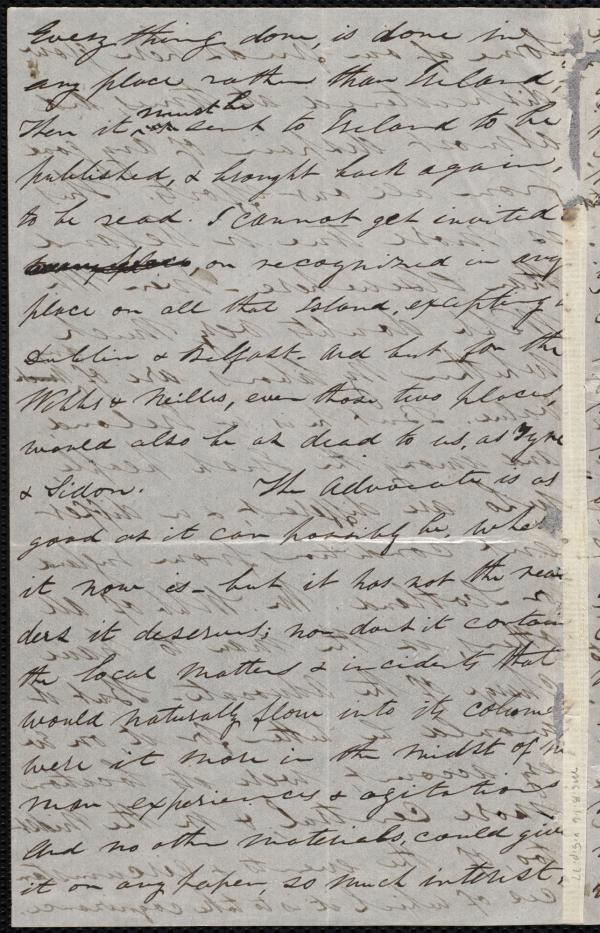 Every thing done, is done in
any place rather than Ireland;
Then it must be sent to Ireland to be
published, & brought back again,
to be read. I cannot get invited
, or recognized in any
place on all that Island, excepting
Dublin & Belfast - And but for the
Webbs & Neills, even those two places,
would also be as dead to us, as Tyre
& Sidon. The Advocate is as
good as it can possibly be, where
it now is - but it has not the rea-
ders it deserves; nor does it contain
the local matters & incidents that
would naturally flow into its columns
were it more in the midst of
experiences & agitations
And no other materials, could give
it or any paper, so much interest,